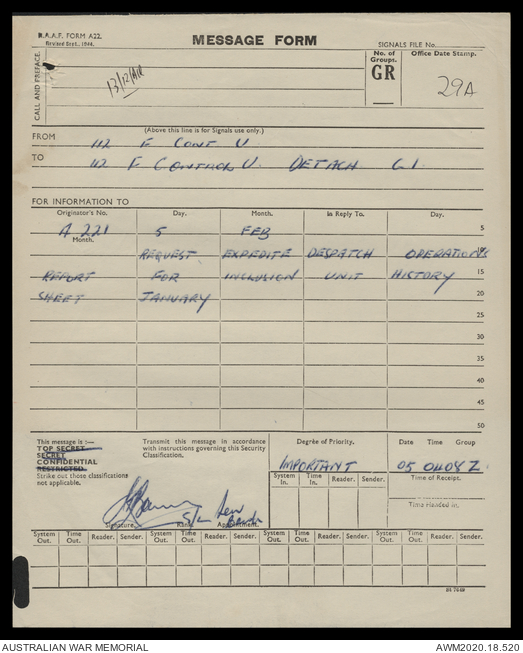 R.A.A.F. FORM A22.
Revised Sept., 1944.
MESSAGE FORM
SIGNALS FILE No.
CALL AND PREFACE.
No. of Groups.
GR
Office Date Stamp.
29A
(Above this line is for Signals use only.)
FROM 112 F CONT U.
TO 112 F CONTROL U. DETACH G 1.
FOR INFORMATION TO
Originator's No. Day. Month. In Reply To. Day.
A 221 5 FEB 5
Month.
REQUEST EXPEDITE DESPATCH OPERATIONS 10
REPORT FOR INCLUSION UNIT HISTORY 15
SHEET JANUARY 20
25
30
35
40
45
50
This message is :—
TOP SECRET
SECRET
CONFIDENTIAL
RESTRICTED.
Strike out those classifications not applicable.
Transmit this message in accordance with instructions governing this Security Classification.
Degree of Priority.
IMPORTANT
Date Time Group
05 0408 Z
System In. Time In. Reader. Sender.
Time of Receipt.
Time Handed in.
Signature. Rank. Appointment.
System Out. Time Out. Reader. Sender. System Out. Time Out. Reader. Sender. System Out. Time Out. Reader. Sender. System Out. Time Out. Reader. Sender.
AUSTRALIAN WAR MEMORIAL
AWM2020.18.520